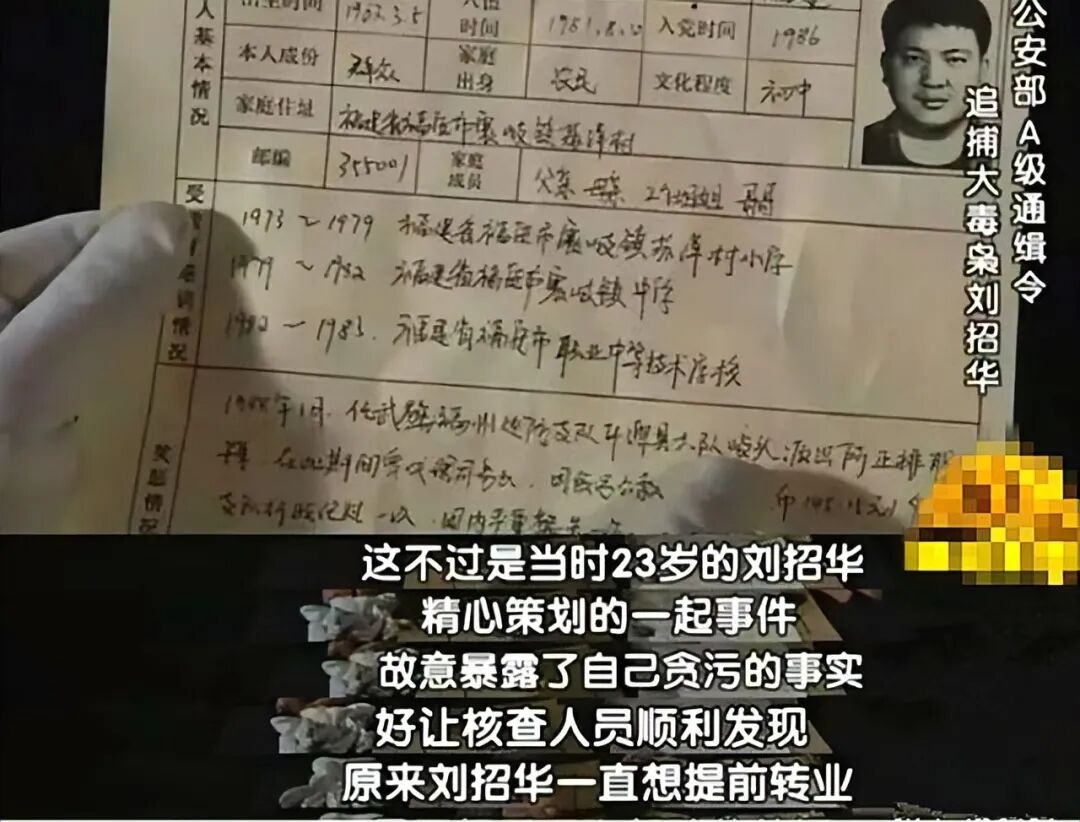 出生时间 1962.3.5 时间 1981.8. 入党时间 1986
人基本情况
本人成份 群众 家庭出身 农民 文化程度 初中
家庭住址 福建省福安市赛岐镇苏洋村
邮编 355001 家庭成员 父亲 母亲
公安部 A级通缉令
追捕大毒枭刘招华
受 培训情况
1973～1979 福建省福安市赛岐镇苏洋村小学
1979～1982 福建省福安市赛岐镇中学
1982－1983. 福建省福安市职业中等技术学校
奖惩情况
1988年1月 任武警福州边防支队 大队 派出所正排职
在此期间
这不过是当时23岁的刘招华
精心策划的一起事件
故意暴露了自己贪污的事实
好让核查人员顺利发现
原来刘招华一直想提前转业